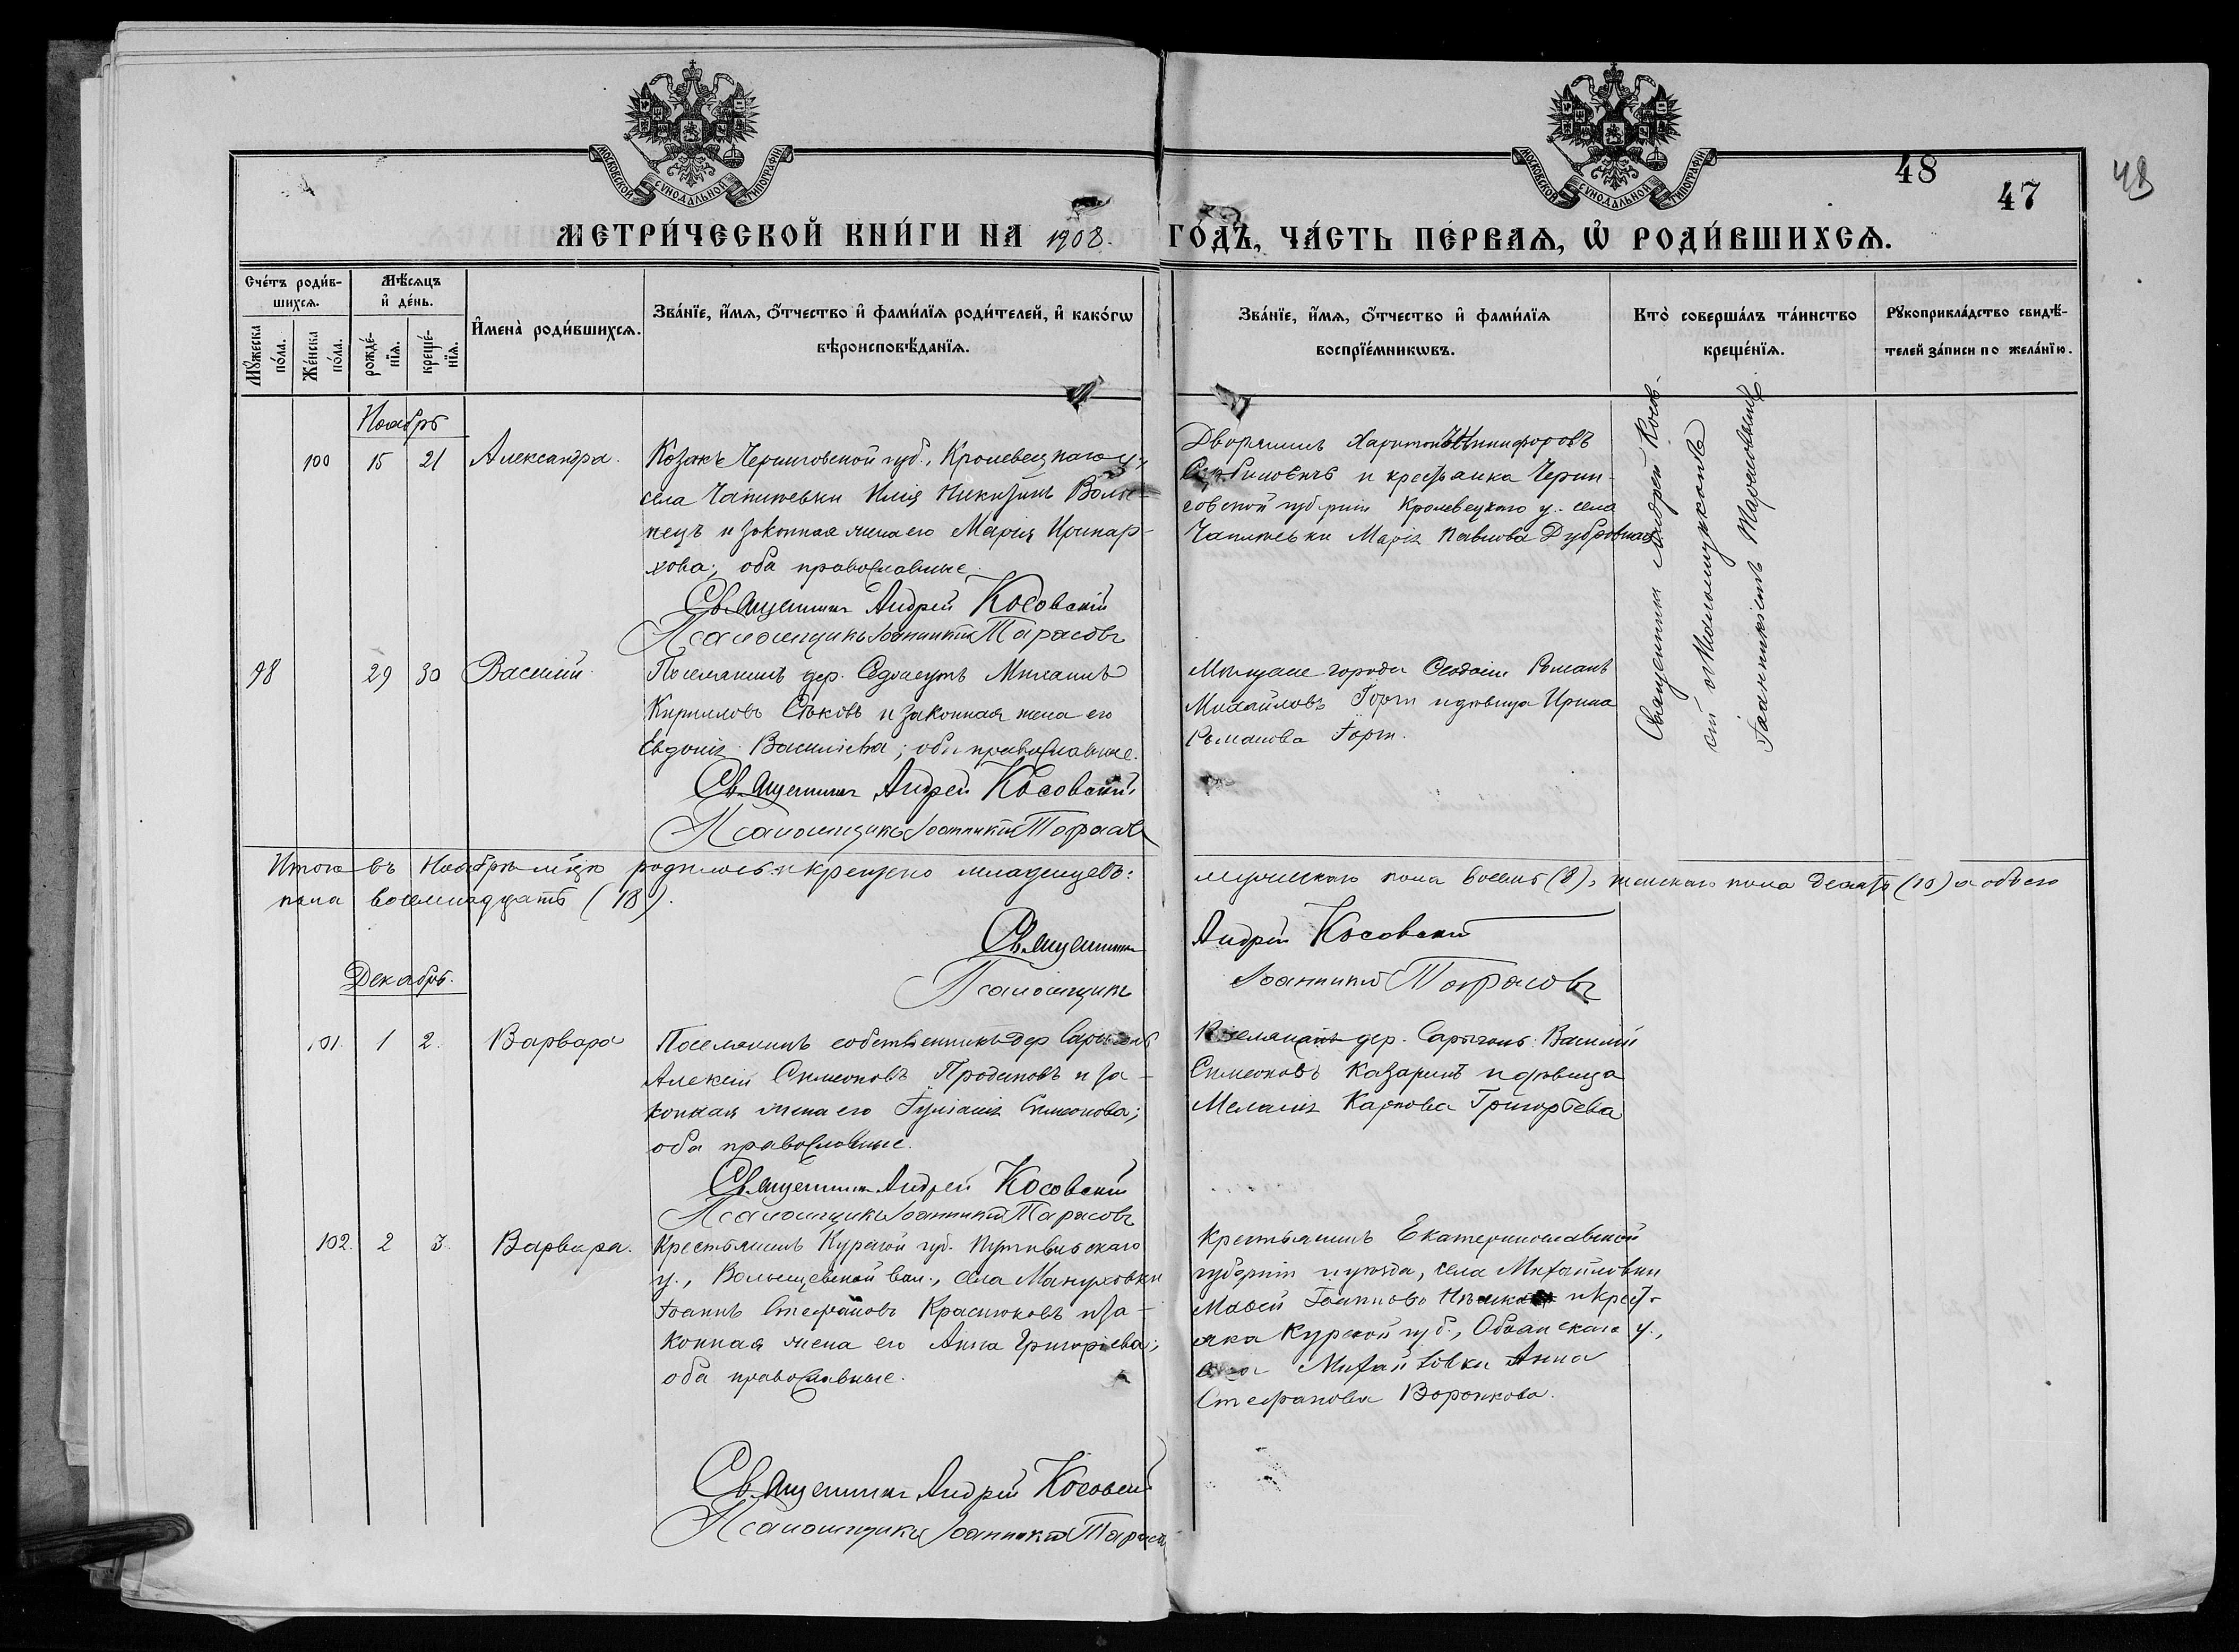 МОСКОВСКОЙ СѴНОДАЛЬНОЙ ТИПОГРАФІИ
МОСКОВСКОЙ СѴНОДАЛЬНОЙ ТИПОГРАФІИ
48
47
МЕТРИ́ЧЕСКОЙ КНИ́ГИ НА 1908. ГО́ДЪ, ЧА́СТЬ ПЕ́РВАѦ, Ѡ҆ РОДИ́ВШИХСѦ.
Сче́тъ роди́в-
шихсѧ.
Мꙋ́жеска по́ла.
Же́нска по́ла.
Мѣ́сѧцъ
и҆ де́нь.
рожде́-
нїѧ.
креще́-
нїѧ.
И҆мена̀ роди́вшихсѧ.
Зва́нїе, и҆́мѧ, ѻ҆́тчество и҆ фами́лїѧ роди́телей, и҆ како́гѡ
вѣроисповѣ́данїѧ.
Зва́нїе, и҆́мѧ, ѻ҆́тчество и҆ фами́лїѧ
воспрїе́мникѡвъ.
Кто̀ соверша́лъ та́инство
креще́нїѧ.
Рꙋкоприкла́дство свидѣ́-
телей за́писи по жела́нїю.
Ноабрь
100 15 21 Александра.
Козакъ Черниговской губ., Кролевецкаго у.,
села Чапиževки Илія Никитинъ
нецъ и законная жена его Марія Иринар-
хова; оба православные.
Священникъ Андрей Косовскій
Псаломщикъ Іоанникій Тарасовъ
Дворянинъ Харитонъ Никифоровъ
и крестьянка Черни-
говской губерніи Кролевецкаго у. села
Марія Павлова Дубровная
Священникъ Андрей Косов-
скій
Іоанникіемъ Тарасовымъ
98 29 30 Василій.
Поселянинъ дер. Михаилъ
Кирилловъ и законная жена его
Евдокія Васильева; оба православные.
Священникъ Андрей Косовскій
Псаломщикъ Іоанникій Тарасовъ
Мѣщане города Ѳеодосіи Романъ
Михайловъ Горт и дѣвица Ирина
Романова Горт.
Итого въ Ноябрѣ м-цѣ родилось и крещено младенцевъ: мужескаго пола восемь (8), женскаго пола десять (10) а обоего
пола восемнадцать (18).
Священникъ Андрей Косовскій
Псаломщикъ Іоанникій Тарасовъ
Декабрь.
101. 1 2. Варвара
Поселянинъ собственникъ дер. Сарыголь
Алексій Симеоновъ и за-
конная жена его Іуліанія Симеонова;
оба православные.
Священникъ Андрей Косовскій
Псаломщикъ Іоанникій Тарасовъ
Поселянинъ дер. Сарыголь Василій
Симеоновъ Казаринъ и дѣвица
Меланія Карпова Григорьева
102. 2 3. Варвара.
Крестьянинъ Курской губ. Путивльскаго
у., вол., села Мануховки
Іоаннъ Стефановъ Краснюковъ и за-
конная жена его Анна Григоріева;
оба православные.
Священникъ Андрей Косовскій
Псаломщикъ Іоанникій Тарасовъ
Крестьянинъ Екатеринославской
губерніи и уѣзда, села Михайловки
Іоанновъ и крест-
янка Курской губ., Обоянскаго у.,
села Михайловки Анна
Стефанова Воронкова.